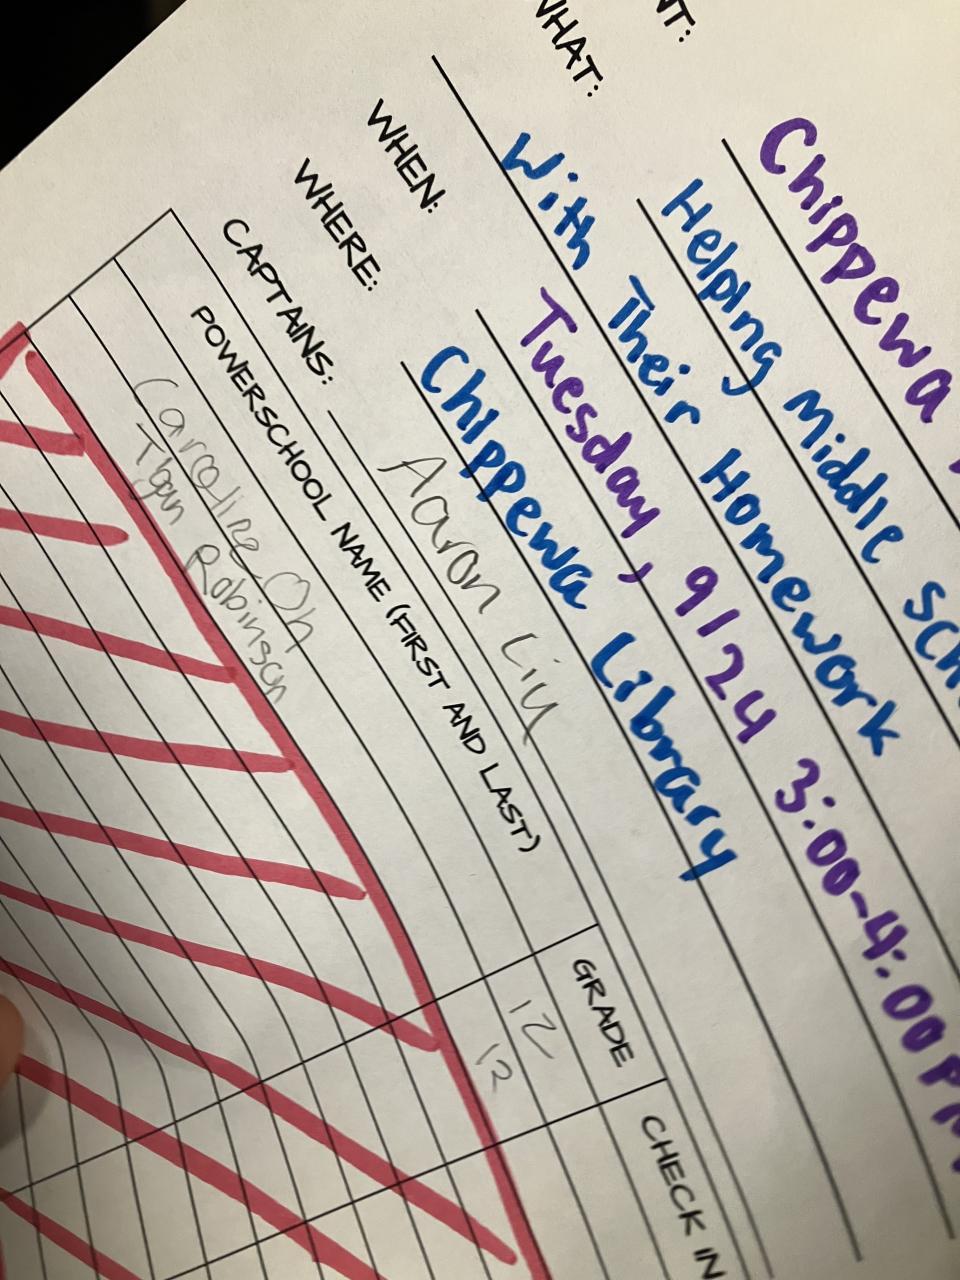 NT:
Chippewa
WHAT:
Helping Middle Sch
With Their Homework
WHEN:
Tuesday, 9/24 3:00-4:00 PM
WHERE:
Chippewa Library
CAPTAINS:
Aaron Liu
POWERSCHOOL NAME (FIRST AND LAST)
GRADE
CHECK IN
Oh
12
Robinson
12